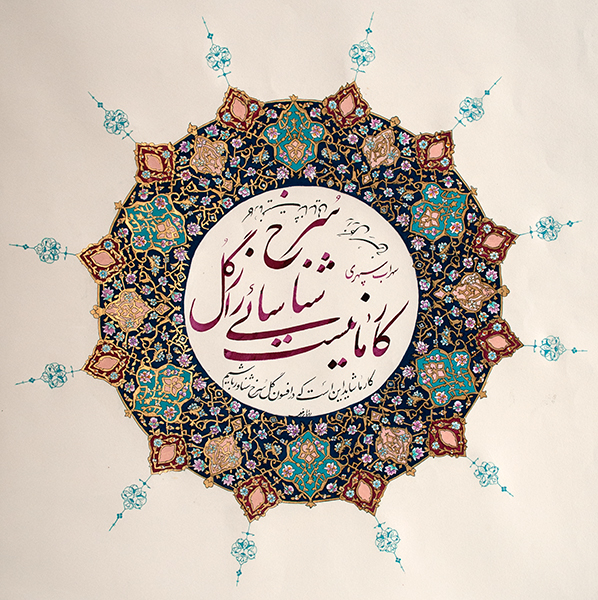 کار ما نیست
شناسائی راز گل
سرخ
سهراب سپهری
کار ما شاید این است که در افسون گل سرخ شناور باشیم